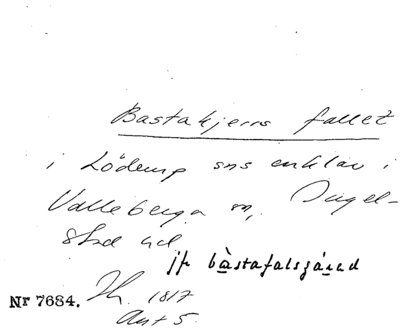 Bastakjers fallet
i Löderup sns enklav i
Valleberga sn, Ingel-
stad hd
jfr bàstafalsgá̱ad
Nr 7684. Jh. 1817
Akt 5.